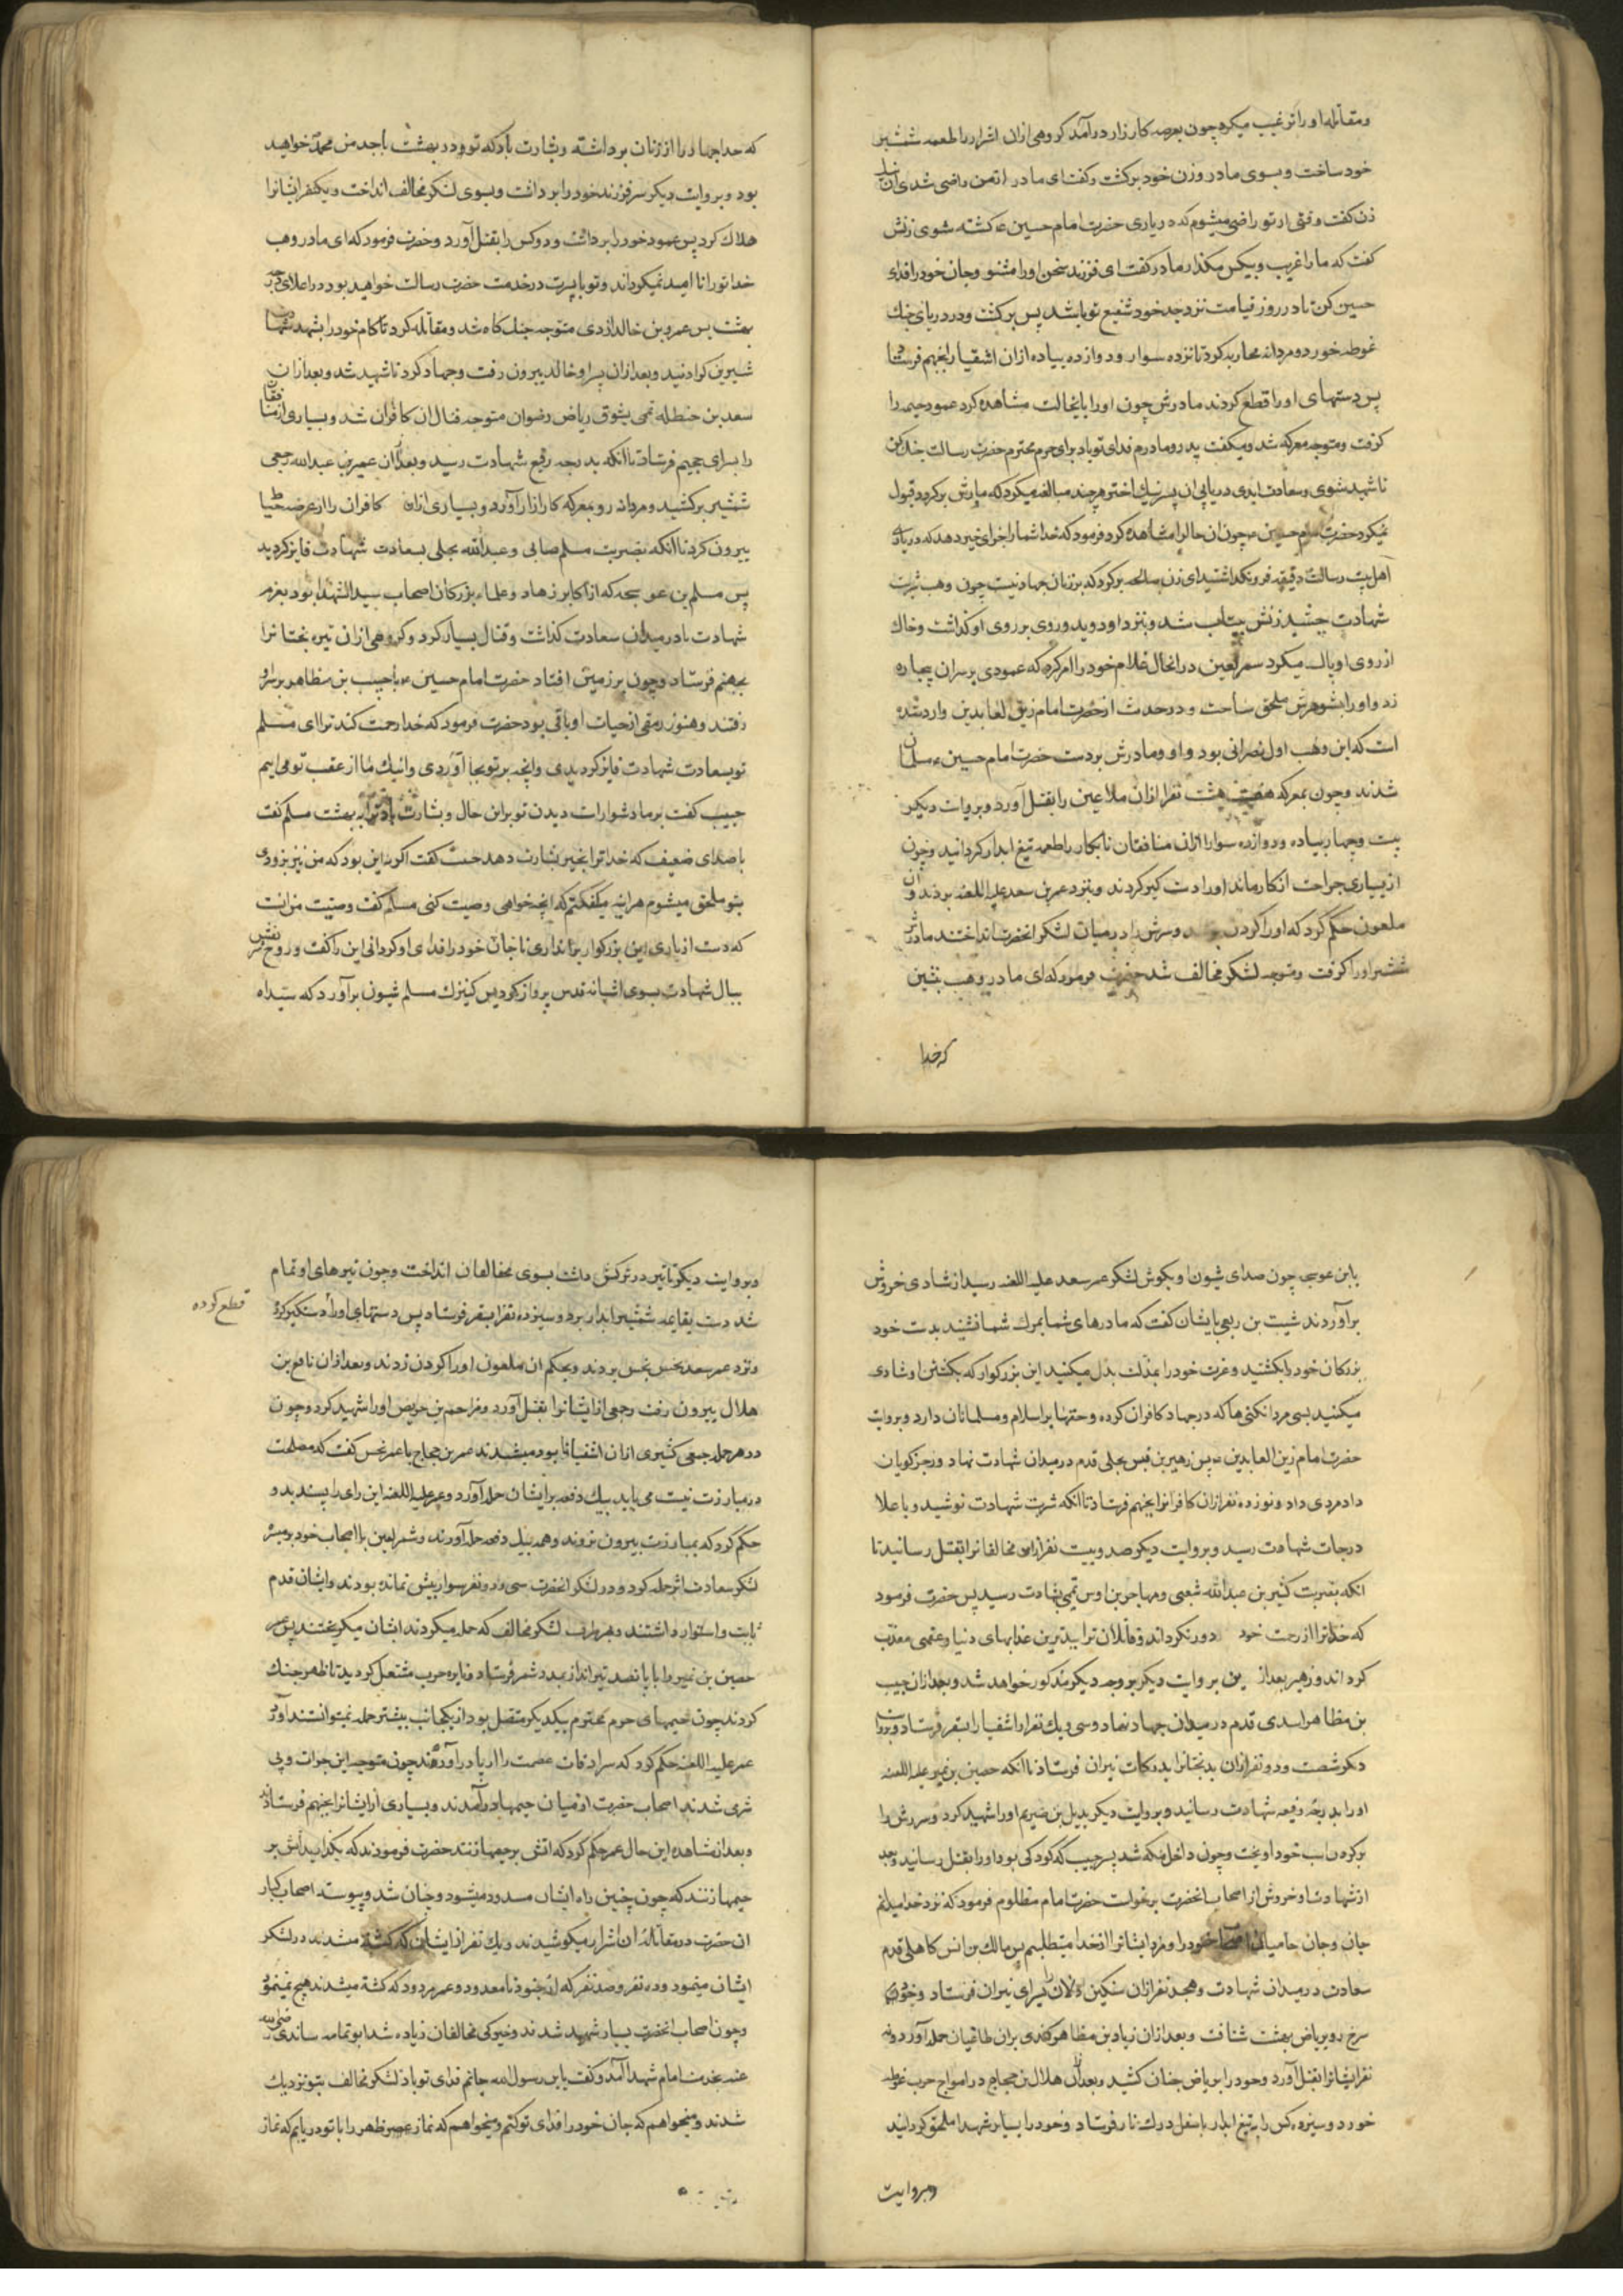 ومقاتله او را ترغیب میکرد چون بعرصه کارزار درآمد کروهی ازان اشرار را طعمه شمشیر
خود ساخت وبسوی مادر وزن خود برکشت وکفت ای مادر ازمن راضی شدی آن
زن کفت وقتی از تو راضی میشوم که در یاری حضرت امام حسین ع کشته شوی زنش
کفت که مارا غریب وبیکس مکذار مادر کفت ای فرزند سخن او را مشنو وجان خود را فدای
حسین کن تا در روز قیامت نزد جد خود شفیع تو باشد پس برکشت ودر دریای جنك
غوطه خورد ومردانه محاربه کرد تا نزده سوار ودوازده پیاده ازان اشقیا را بجهنم فرستاد تا
پس دستهای او را قطع کردند مادرش چون او را باینحالت مشاهده کرد عمود خیمه را
کرفت ومتوجه معرکه شد ومیکفت پدر ومادرم فدای تو باد برای حرم محترم حضرت رسالت جنك کن
تا شهید شوی وسعادت ابدی دریابی ان پسر نیك اختر هرچند مبالغه میکرد که مادرش برکردد قبول
نمیکرد حضرت امام حسین ع چون ان حال را مشاهده کرد فرمود که خدا شما را جزای خیر دهد که در یاری
اهل بیت رسالت دقیقه فرونکذاشتید ای زن صالحه برکرد که بر زنان جهاد نیست چون وهب شربت
شهادت چشید زنش بیتاب شد وبنزد او دوید وروی بر روی او کذاشت وخاك
از روی او پاك میکرد شمر لعین درانحال غلام خود را امر کرد که عمودی بر سر ان بیچاره
زد واو را بشوهرش ملحق ساخت ودر حدیث از حضرت امام زین العابدین وارد شده
است که این وهب اول نصرانی بود واو ومادرش بر دست حضرت امام حسین ع مسلمان
شدند وچون بمعرکه هفت هشت نفر ازان ملاعین را بقتل آورد وبروایت دیکر
بیست وچهار پیاده ودوازده سوار ازان منافقان نابکار را طعمه تیغ ابدار کردانید وچون
از بسیاری جراحت از کار ماند او را دست کیر کردند وبنزد عمر بن سعد علیه اللعنه بردند وان
ملعون حکم کرد که او را کردن وسرش را در میان لشکر انحضرت انداختند مادرش
شمشیر او را کرفت ومتوجه لشکر مخالف شد حضرت فرمود که ای مادر وهب بنشین
که خدا
که خدا جهاد را از زنان برداشته وبشارت باد که تو ودر بهشت با جد من محمد خواهید
بود وبروایت دیکر سر فرزند خود را برداشت وبسوی لشکر مخالف انداخت ویکنفر ایشانرا
هلاك کرد پس عمود خود را برداشت ودوکس را بقتل آورد وحضرت فرمود که ای مادر وهب
خدا تورا نا امید نمیکرداند وتو با پسرت در خدمت حضرت رسالت خواهید بود در اعلای درجه
بهشت پس عمرو بن خالد ازدی متوجه جنك کاه شد ومقاتله کرد تا کام خود را بشهد شهادت
شیرین کردانید وبعد ازان پسر او خالد بیرون رفت وجهاد کرد تا شهید شد وبعد ازان
سعد بن حنظله تمیمی بشوق ریاض رضوان متوجه قتال ان کافران شد وبسیاری از منافقان
را بسرای جحیم فرستاد تا آنکه بدرجه رفیع شهادت رسید وبعد ازان عمیر بن عبدالله
شمشیر برکشید ومردانه رو بمعرکه کارزار آورد وبسیاری ازان کافران را از عرصه حیات
بیرون کرد تا آنکه بضربت مسلم صابی وعبدالله بجلی بسعادت شهادت فایز کردید
پس مسلم بن عوسجه که از اکابر زهاد وعلماء وبزرکان اصحاب سید الشهدا بود بعزم
شهادت پا در میدان سعادت کذاشت وقتال بسیار کرد وکروهی ازان تیره بختانرا
بجهنم فرستاد وچون بر زمین افتاد حضرت امام حسین ع با حبیب بن مظاهر بر سر او
رفتند وهنوز رمقی از حیات او باقی بود حضرت فرمود که خدا رحمت کند ترا ای مسلم
تو بسعادت شهادت فایز کردیدی وانچه بر تو بجا آوردی واینك ما از عقب تو می ایم
حبیب کفت بر ما دشوارست دیدن تو براین حال وبشارت باد ترا به بهشت مسلم کفت
با صدای ضعیف که خدا ترا بخیر بشارت دهد حبیب کفت اکر نه این بود که من نیز بزودی
بتو ملحق میشوم هراینه میکفتم که انچه خواهی وصیت کنی مسلم کفت وصیت من انست
که دست از یاری این بزرکوار برنداری تا جان خود را فدای او کردانی این را کفت وروح
ببال شهادت بسوی اشیانه قدس پرواز کرد پس کنیزك مسلم شیون برآورد که سیداه
یابن عوسجه چون صدای شیون او بکوش لشکر عمر سعد علیه اللعنه رسید از شادی خروش
برآوردند شبث بن ربعی بایشان کفت که مادرهای شما بمرك شما نشیند بدست خود
بزرکان خود را بکشتید وعزت خود را بمذلت بدل میکنید این بزرکوار که بکشتن او شادی
میکنید بسی مردانکی ها که در جهاد کافران کرده وحقها بر اسلام ومسلمانان دارد وبروایت
حضرت امام زین العابدین ع پس زهیر بن قیس بجلی قدم در میدان شهادت نهاد ورجز کویان
داد مردی داد ونوزده نفر ازان کافرانرا بجهنم فرستاد تا آنکه شربت شهادت نوشید وباعلا
درجات شهادت رسید وبروایت دیکر صد وبیست نفر ازان مخالفانرا بقتل رسانید تا
انکه بضربت کثیر بن عبدالله شعبی ومهاجر بن اوس تمیمی بشهادت رسید پس حضرت فرمود
که خدا ترا از رحمت خود دور نکرداند وقاتلان ترا ببدترین عذابهای دنیا وعقبی معذب
کرداند وزهیر بعد از بروایت دیکر بر وجه دیکر مذکور خواهد شد وبعد ازان حبیب
بن مظاهر اسدی قدم در میدان جهاد نهاد وسی ویك نفر از اشقیا را بسقر فرستاد وبروایت
دیکر شصت ودو نفر ازان بدبختانرا بدرکات نیران فرستاد تا آنکه حصین بن نمیر علیه اللعنه
او را بدرجه رفیعه شهادت رسانید وبروایت دیکر بدیل بن صریم او را شهید کرد وسرش را
بر کردن اسب خود اویخت وچون داخل مکه شد پسر حبیب که کودکی بود او را بقتل رسانید وبعد
از شهادت او خروش از اصحاب انحضرت برخواست حضرت امام مظلوم فرمود که نزد خدا میدانم
جان وجان حامیان خود را ومزد ایشانرا از خدا میطلبم پس مالك بن انس کاهلی قدم
سعادت در میدان شهادت وهجده نفر ازان سنکین دلان را بسرای نیران فرستاد وخود
سرخ رو بریاض بهشت شتافت وبعد ازان زیاد بن مظاهر کندی بران طاغیان حمله آورد ونه
نفر ایشانرا بقتل آورد وخود را بریاض جنان کشید وبعد ازان هلال بن حجاج در امواج حرب غوطه
خورد وسیزده کس را به تیغ ابدار باسفل درك نار فرستاد وخود را بسایر شهدا ملحق کردانید
وبروایت
وبروایت دیکر تا تیر در ترکش داشت بسوی مخالفان انداخت وچون تیرهای او تمام
شد دست بقایمه شمشیر ابدار برد وسیزده نفر را بسقر فرستاد پس دستهای او را دستکیر کرده
قطع کرده
ونزد عمر سعد نحس نجس بردند وبحکم ان ملعون او را کردن زدند وبعد ازان نافع بن
هلال بیرون رفت وجمعی از ایشانرا بقتل آورد ومزاحم بن حریص او را شهید کرد وچون
در هر حمله جمعی کثیری ازان اشقیا نابود میشدند عمر بن حجاج با عمر نحس کفت که مصلحت
در مبارزت نیست می باید بیك دفعه بر ایشان حمله آورد وعمر علیه اللعنه این رای را پسندید و
حکم کرد که بمبارزت بیرون نروند وهمه بیك دفعه حمله آورند وشمر لعین با اصحاب خود بر میسره
لشکر سعادت اثر حمله کرد ودر لشکر انحضرت سی ودو نفر سوار بیش نمانده بودند وایشان قدم
ثابت واستوار داشتند وبهر طرف لشکر مخالف که حمله میکردند ایشان میکریختند پس عمر
حصین بن نمیر را با پانصد تیرانداز بمدد شمر فرستاد ونایره حرب مشتعل کردید تا ظهر جنك
کردند چون خیمهای حرم محترم بیکدیکر متصل بود از یکجانب بیشتر حمله نمیتوانستند آورد
عمر علیه اللعنه حکم کرد که سرادقات عصمت را از پا درآورند چون متوجه این جرات وبی
شرمی شدند اصحاب حضرت از میان خیمها درآمدند وبسیاری از ایشانرا بجهنم فرستادند
وبعد از مشاهده این حال عمر حکم کرد که اتش بر خیمها زنند حضرت فرمودند که بکذارید اتش بر
خیمها زنند که چون چنین راه ایشان مسدود میشود وچنان شد وپیوسته اصحاب کبار
ان حضرت در مقاتله ان اشرار میکوشیدند ویك نفر از ایشان که کشته میشدند در لشکر
ایشان مینمود وده نفر وصد نفر که از جنود نامعدود عمر مردود که کشته میشدند هیچ نمینمود
وچون اصحاب انحضرت بسیار شهید شدند وخیرکی مخالفان زیاده شد ابو تمامه ساندی رضی الله
عنه بخدمت امام شهدا آمد وکفت یابن رسول الله جانم فدای تو باد لشکر مخالف بتو نزدیك
شدند ومیخواهم که جان خود را فدای تو کنم ومیخواهم که نماز عصر وظهر را با تو دریابم که نماز